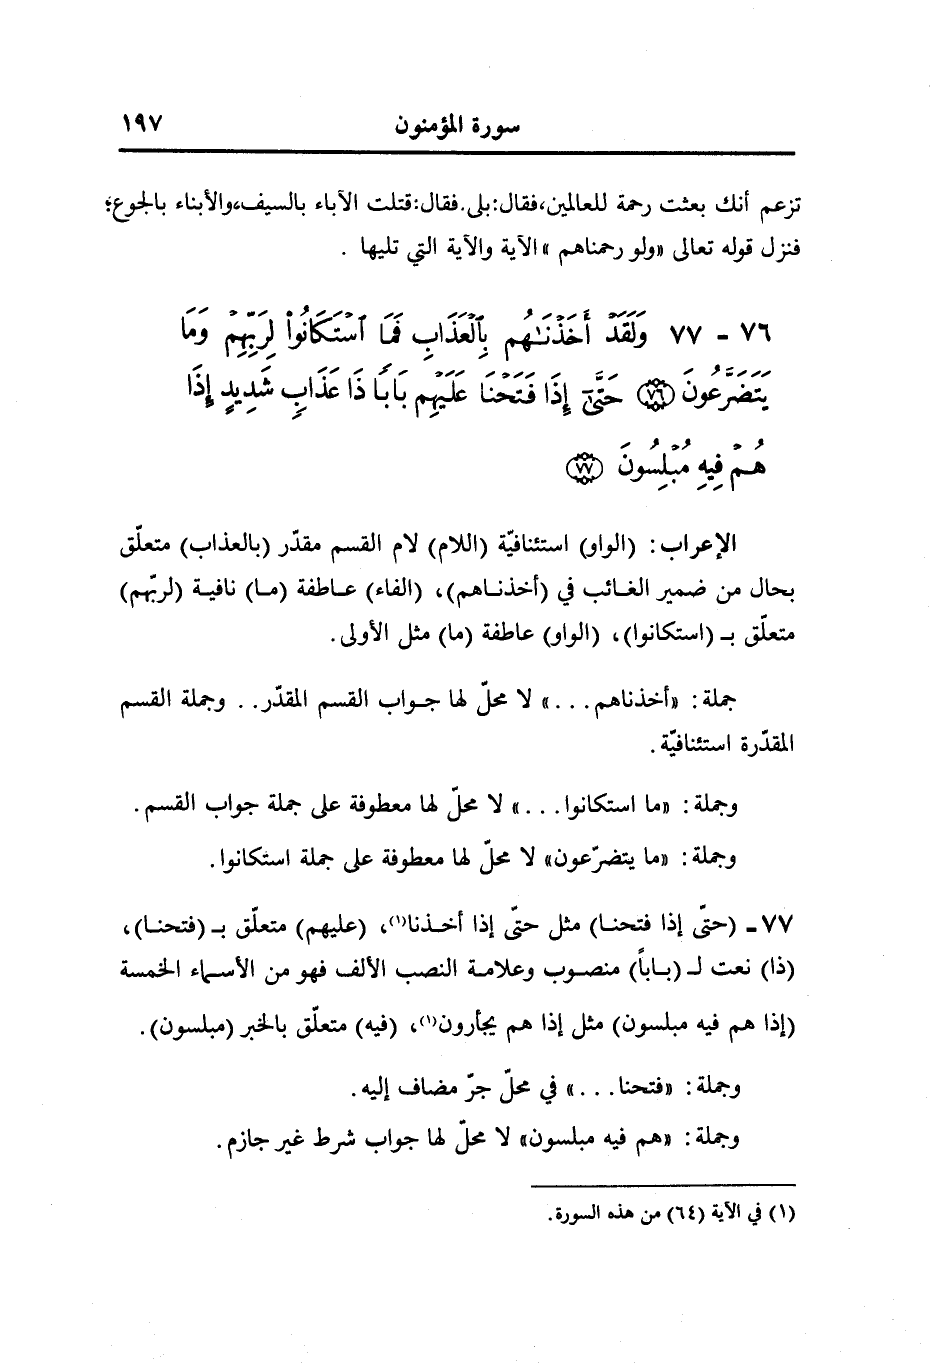 سورة المؤمنون ١٩٧
تزعم أنك بعثت رحمة للعالمين،فقال:بلى.فقال:قتلت الآباء بالسيف،والأبناء بالجوع؛
فنزل قوله تعالى «ولو رحمناهم »الآية والآية التي تليها .
٧٦ - ٧٧ وَلَقَدْ أَخَذْنَٰهُم بِٱلْعَذَابِ فَمَا ٱسْتَكَانُوا۟ لِرَبِّهِمْ وَمَا
يَتَضَرَّعُونَ ﴿٧٦﴾ حَتَّىٰٓ إِذَا فَتَحْنَا عَلَيْهِم بَابًا ذَا عَذَابٍ شَدِيدٍ إِذَا
هُمْ فِيهِ مُبْلِسُونَ ﴿٧٧﴾
الإعراب: (الواو) استئنافيّة (اللام) لام القسم مقدّر (بالعذاب) متعلّق
بحال من ضمير الغائب في (أخذناهم)، (الفاء) عاطفة (ما) نافية (لربّهم)
متعلّق بـ (استكانوا)، (الواو) عاطفة (ما) مثل الأولى.
جملة: «أخذناهم...» لا محلّ لها جواب القسم المقدّر.. وجملة القسم
المقدّرة استئنافيّة.
وجملة: «ما استكانوا...» لا محلّ لها معطوفة على جملة جواب القسم.
وجملة: «ما يتضرّعون» لا محلّ لها معطوفة على جملة استكانوا.
٧٧ـ (حتّى إذا فتحنا) مثل حتّى إذا أخذنا(١)، (عليهم) متعلّق بـ (فتحنا)،
(ذا) نعت لـ (باباً) منصوب وعلامة النصب الألف فهو من الأسماء الخمسة
(إذا هم فيه مبلسون) مثل إذا هم يجأرون(١)، (فيه) متعلّق بالخبر (مبلسون).
وجملة: «فتحنا...» في محلّ جرّ مضاف إليه.
وجملة: «هم فيه مبلسون» لا محلّ لها جواب شرط غير جازم.
(١) في الآية (٦٤) من هذه السورة.